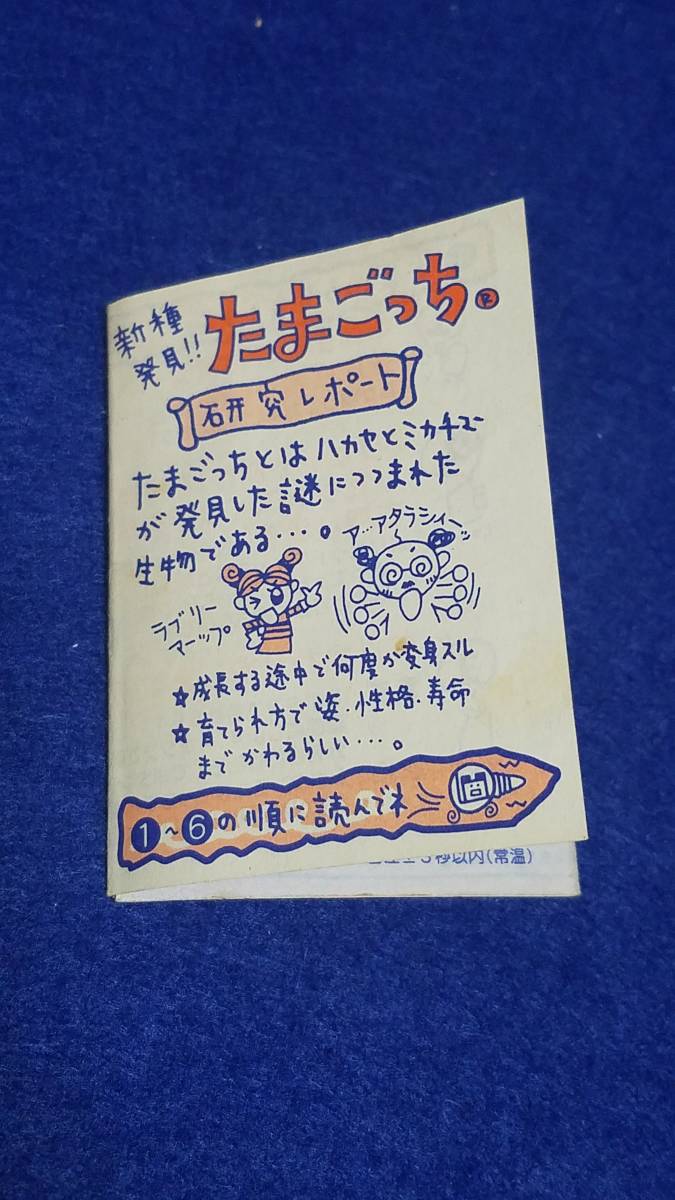 新種
発見!!
たまごっち®
研究レポート
たまごっちとはハカセとミカチュー
が発見した謎につつまれた
生物である…。
ア…アタラシィーッ
ラブリー
マーップ
☆成長する途中で何度か変身スル
☆育てられ方で姿・性格・寿命
までかわるらしい…。
❶~❻の順に読んでネ
秒以内(常温)